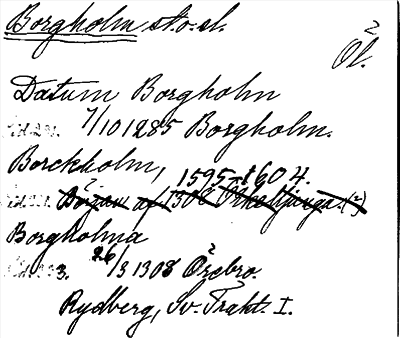 Borgholm st. o. sl.
Öl.
Datum Borgholm
7/10 1285 Borgholm.
Borckholm, 1595-1604.
Borgholma
26/3 1308 Örebro.
Rydberg, Sv. Trakt. I.